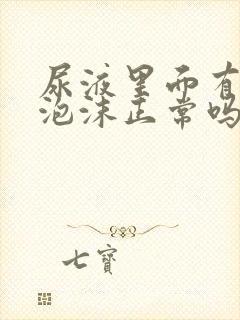 尿液里面有
泡沫正常吗
七寳